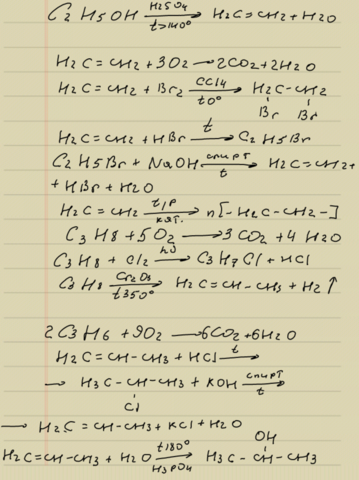 C2H5OH H2SO4 t>140° → H2C=CH2+H2O
H2C=CH2+3O2 → 2CO2+2H2O
H2C=CH2+Br2 CCl4 t0° → H2C-CH2
Br Br
H2C=CH2+HBr t → C2H5Br
C2H5Br+NaOH спирт t → H2C=CH2+
+HBr+H2O
H2C=CH2 t/P кат. → n[-H2C-CH2-]
C3H8+5O2 → 3CO2+4H2O
C3H8+Cl2 hν → C3H7Cl+HCl
C3H8 Cr2O3 t350° → H2C=CH-CH3+H2↑
2C3H6+9O2 → 6CO2+6H2O
H2C=CH-CH3+HCl t →
→ H3C-CH-CH3+KOH спирт t →
Cl
→ H2C=CH-CH3+KCl+H2O
OH
H2C=CH-CH3+H2O t180° H3PO4 → H3C-CH-CH3